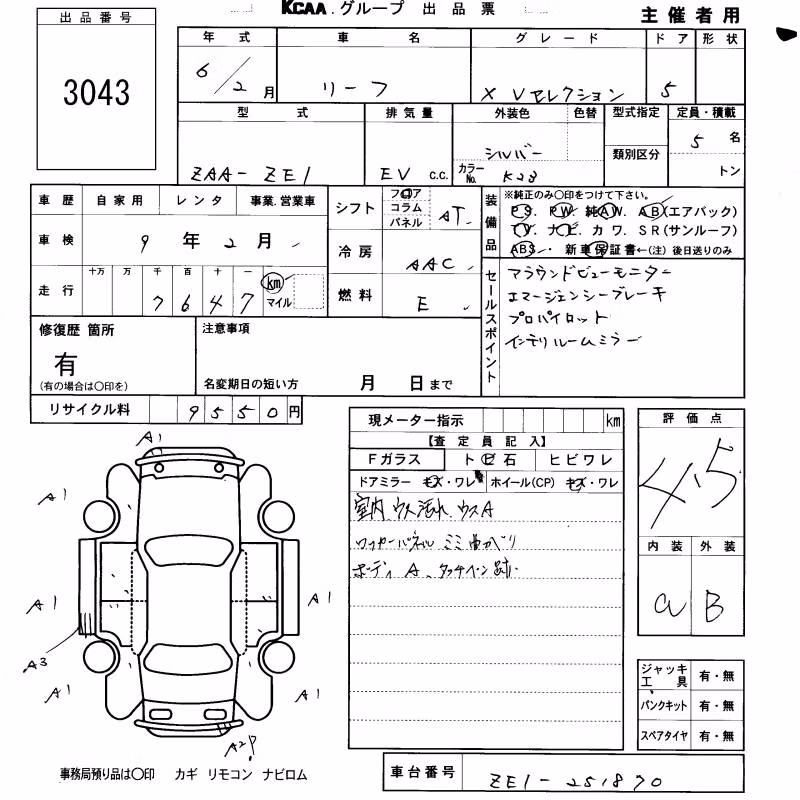 KCAA.グループ 出品票
主催者用
出品番号
3043
年式 車名 グレード ドア 形状
6/2月 リーフ X Vセレクション 5
型式 排気量 外装色 色替 型式指定 定員・積載
シルバー 5名
類別区分
ZAA-ZE1 EV C.C. カラーNo. K23 トン
車歴 自家用 レンタ 事業.営業車
シフト フロア コラム パネル AT
装備品
※純正のみ〇印をつけて下さい。
PS. PW. 純AW. AB(エアバック)
TV. ナビ. カワ. SR(サンルーフ)
ABS・ 新車保証書←(注)後日送りのみ
車検 9年2月
冷房 AAC
走行 十万 万 千 百 十 一
7647 km マイル
燃料 E
セールスポイント
アラウンドビューモニター
エマージェンシーブレーキ
プロパイロット
インテリルームミラー
修復歴 箇所
有
(有の場合は〇印を)
注意事項
名変期日の短い方 月 日まで
リサイクル料 9550円
現メーター指示 km
【査定員記入】
Fガラス トビ石 ヒビワレ
ドアミラー キズ・ワレ ホイール(CP) キズ・ワレ
室内 ウス汚れ、ウスA
ロッカーパネル ミミ曲がり
ボディ A、タッチペン跡
評価点
4.5
内装 外装
a B
A1
A1
A1
A1
A1
A3
A1
A1
A2
ジャッキ工具 有・無
パンクキット 有・無
スペアタイヤ 有・無
事務局預り品は〇印 カギ リモコン ナビロム
車台番号 ZE1-251870